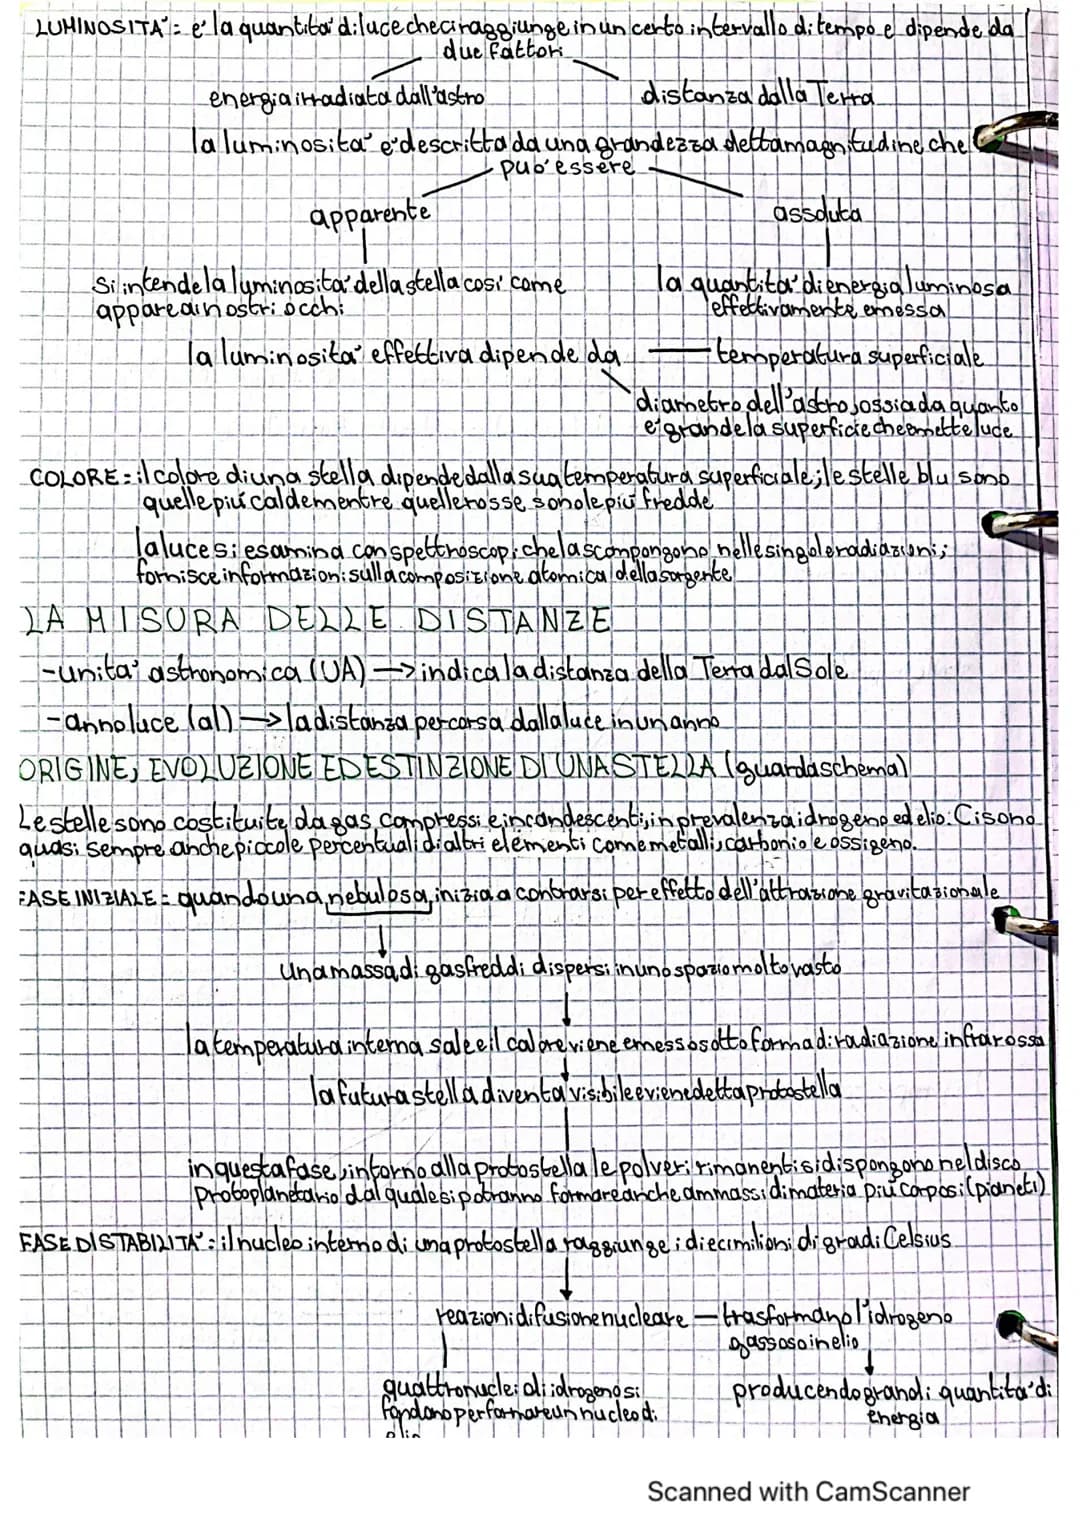 LUMINOSITA' = e' la quantita' di luce che ci raggiunge in un certo intervallo di tempo e dipende da
due fattori
energia irradiata dall'astro
distanza dalla Terra
la luminosita' e' descritta da una grandezza detta magnitudine che
puo' essere
apparente
assoluta
si intende la luminosita' della stella cosi' come
appare ai nostri occhi
la quantita' di energia luminosa
effettivamente emessa
la luminosita' effettiva dipende da
temperatura superficiale
diametro dell'astro, ossia da quanto
e' grande la superficie che emette luce
COLORE = il colore di una stella dipende dalla sua temperatura superficiale; le stelle blu sono
quelle piu' calde mentre quelle rosse sono le piu' fredde
la luce si esamina con spettroscopi che la scompongono nelle singole radiazioni;
fornisce informazioni sulla composizione atomica della sorgente
LA MISURA DELLE DISTANZE
-unita' astronomica (UA) → indica la distanza della Terra dal Sole
-anno luce (al) → la distanza percorsa dalla luce in un anno
ORIGINE, EVOLUZIONE ED ESTINZIONE DI UNA STELLA (guarda schema)
Le stelle sono costituite da gas compressi e incandescenti, in prevalenza idrogeno ed elio. Ci sono
quasi sempre anche piccole percentuali di altri elementi come metalli, carbonio e ossigeno.
FASE INIZIALE = quando una nebulosa inizia a contrarsi per effetto dell'attrazione gravitazionale
una massa di gas freddi dispersi in uno spazio molto vasto
la temperatura interna sale e il calore viene emesso sotto forma di radiazione infrarossa
la futura stella diventa visibile e viene detta protostella
in questa fase, intorno alla protostella le polveri rimanenti si dispongono nel disco
protoplanetario dal quale si potranno formare anche ammassi di materia piu' corposi (pianeti)
FASE DI STABILITA' = il nucleo interno di una protostella raggiunge i dieci milioni di gradi Celsius
reazioni di fusione nucleare — trasformano l'idrogeno
gassoso in elio
quattro nuclei di idrogeno si
fondono per formare un nucleo di
elio
producendo grandi quantita' di
energia
Scanned with CamScanner